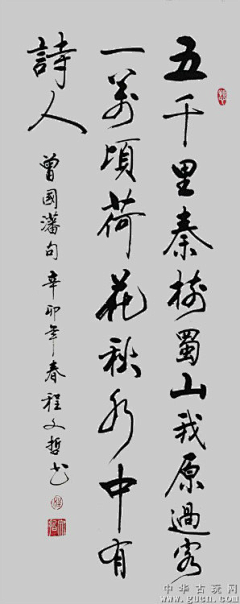 五千里秦樹蜀山我原過客
一萬頃荷花秋水中有
詩人
曾國藩句 辛卯年春程文哲书
中华古玩网
www.gucn.com